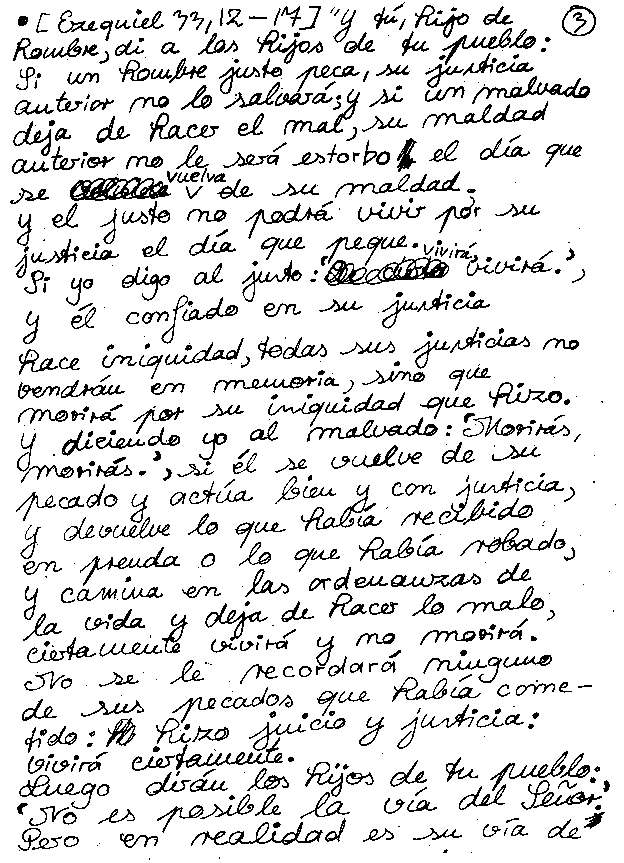 • [Ezequiel 33,12-17] "Y tú, hijo de ③
hombre, di a los hijos de tu pueblo:
Si un hombre justo peca, su justicia
anterior no lo salvará; y si un malvado
deja de hacer el mal, su maldad
anterior no le será estorbo el día que
se vuelva de su maldad.
Y el justo no podrá vivir por su
justicia el día que peque.
Si yo digo al justo: 'vivirá, vivirá.',
y él confiado en su justicia
hace iniquidad, todas sus justicias no
vendrán en memoria, sino que
morirá por su iniquidad que hizo.
Y diciendo yo al malvado: 'Morirás,
morirás.', si él se vuelve de su
pecado y actúa bien y con justicia,
y devuelve lo que había recibido
en prenda o lo que había robado,
y camina en las ordenanzas de
la vida y deja de hacer lo malo,
ciertamente vivirá y no morirá.
No se le recordará ninguno
de sus pecados que había come-
tido: hizo juicio y justicia:
vivirá ciertamente.
Luego dirán los hijos de tu pueblo:
'No es posible la vía del Señor.'
Pero en realidad es su vía de